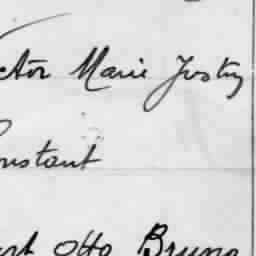 ctor Marie Justin
onstant
ert Otto Bruno